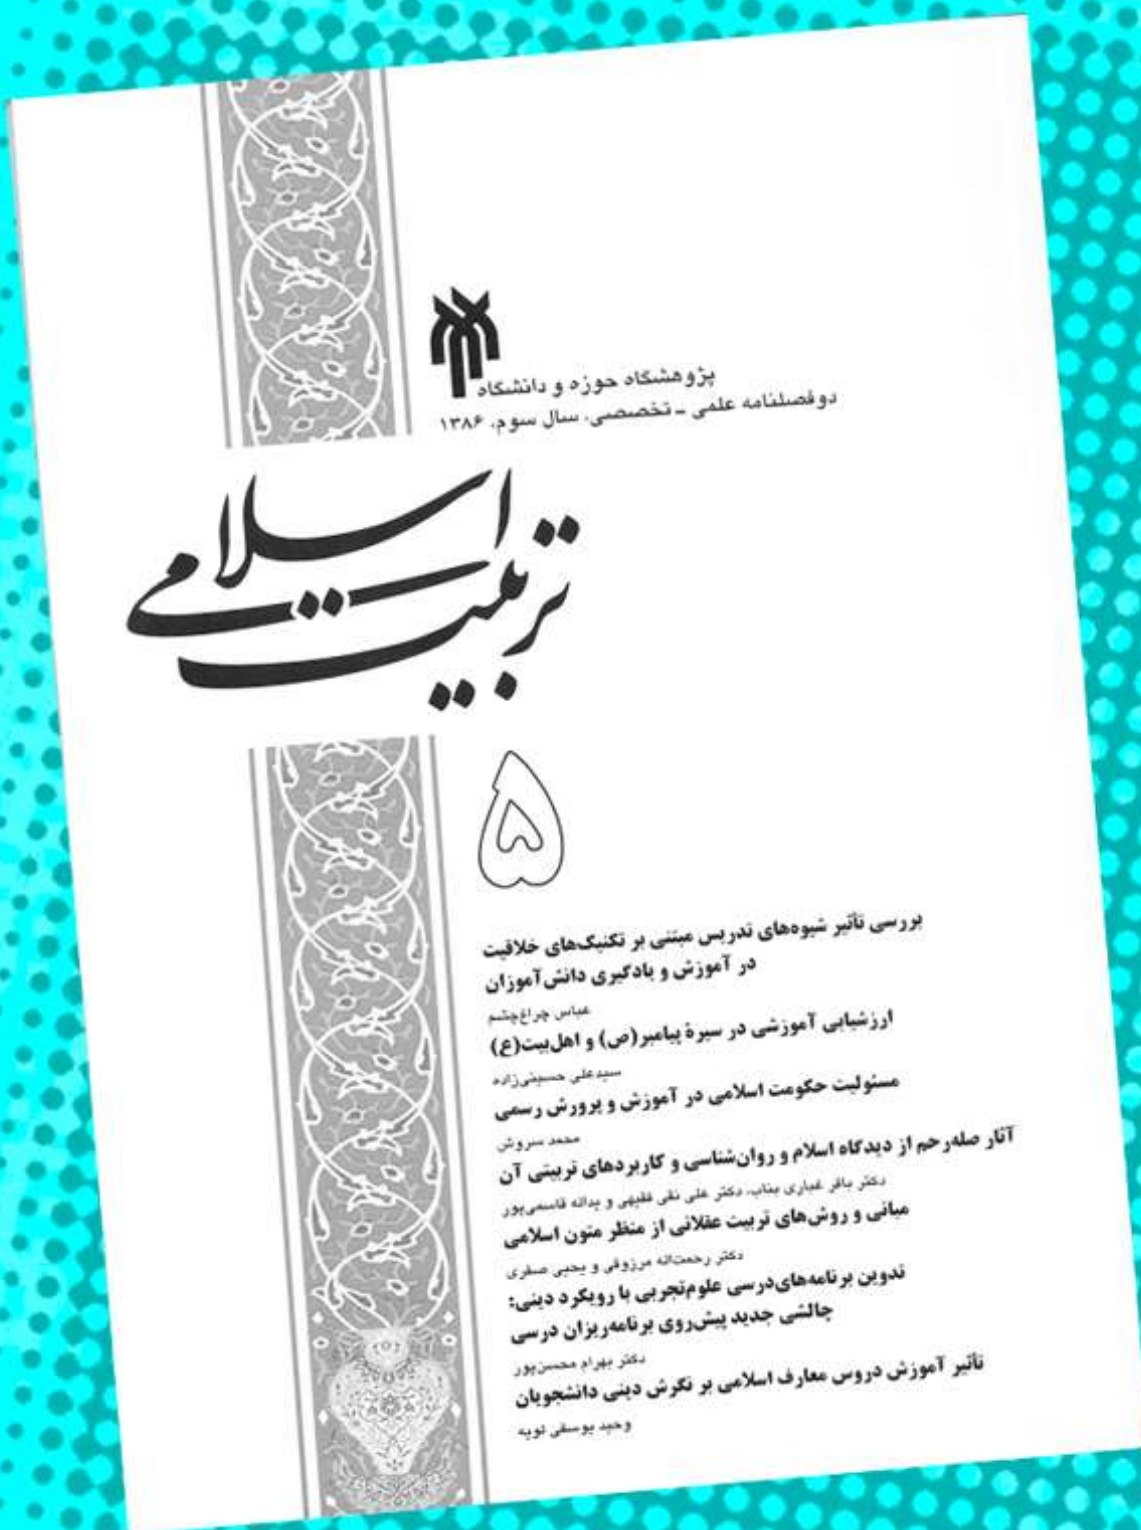 پژوهشگاه حوزه و دانشگاه
دو فصلنامه علمی ـ تخصصی، سال سوم، ۱۳۸۶
تربیت اسلامی
۵
بررسی تأثیر شیوه‌های تدریس مبتنی بر تکنیک‌های خلاقیت
در آموزش و یادگیری دانش‌آموزان
عباس چراغ‌چشم
ارزشیابی آموزشی در سیرهٔ پیامبر(ص) و اهل‌بیت(ع)
سیدعلی حسینی‌زاده
مسئولیت حکومت اسلامی در آموزش و پرورش رسمی
محمد سروش
آثار صله‌رحم از دیدگاه اسلام و روان‌شناسی و کاربردهای تربیتی آن
دکتر باقر غباری بناب، دکتر علی نقی فقیهی و یداله قاسمی‌پور
مبانی و روش‌های تربیت عقلانی از منظر متون اسلامی
دکتر رحمت‌اله مرزوقی و یحیی صفری
تدوین برنامه‌های‌درسی علوم‌تجربی با رویکرد دینی:
چالشی جدید پیش‌روی برنامه‌ریزان درسی
دکتر بهرام محسن‌پور
تأثیر آموزش دروس معارف اسلامی بر نگرش دینی دانشجویان
وحید یوسفی لویه